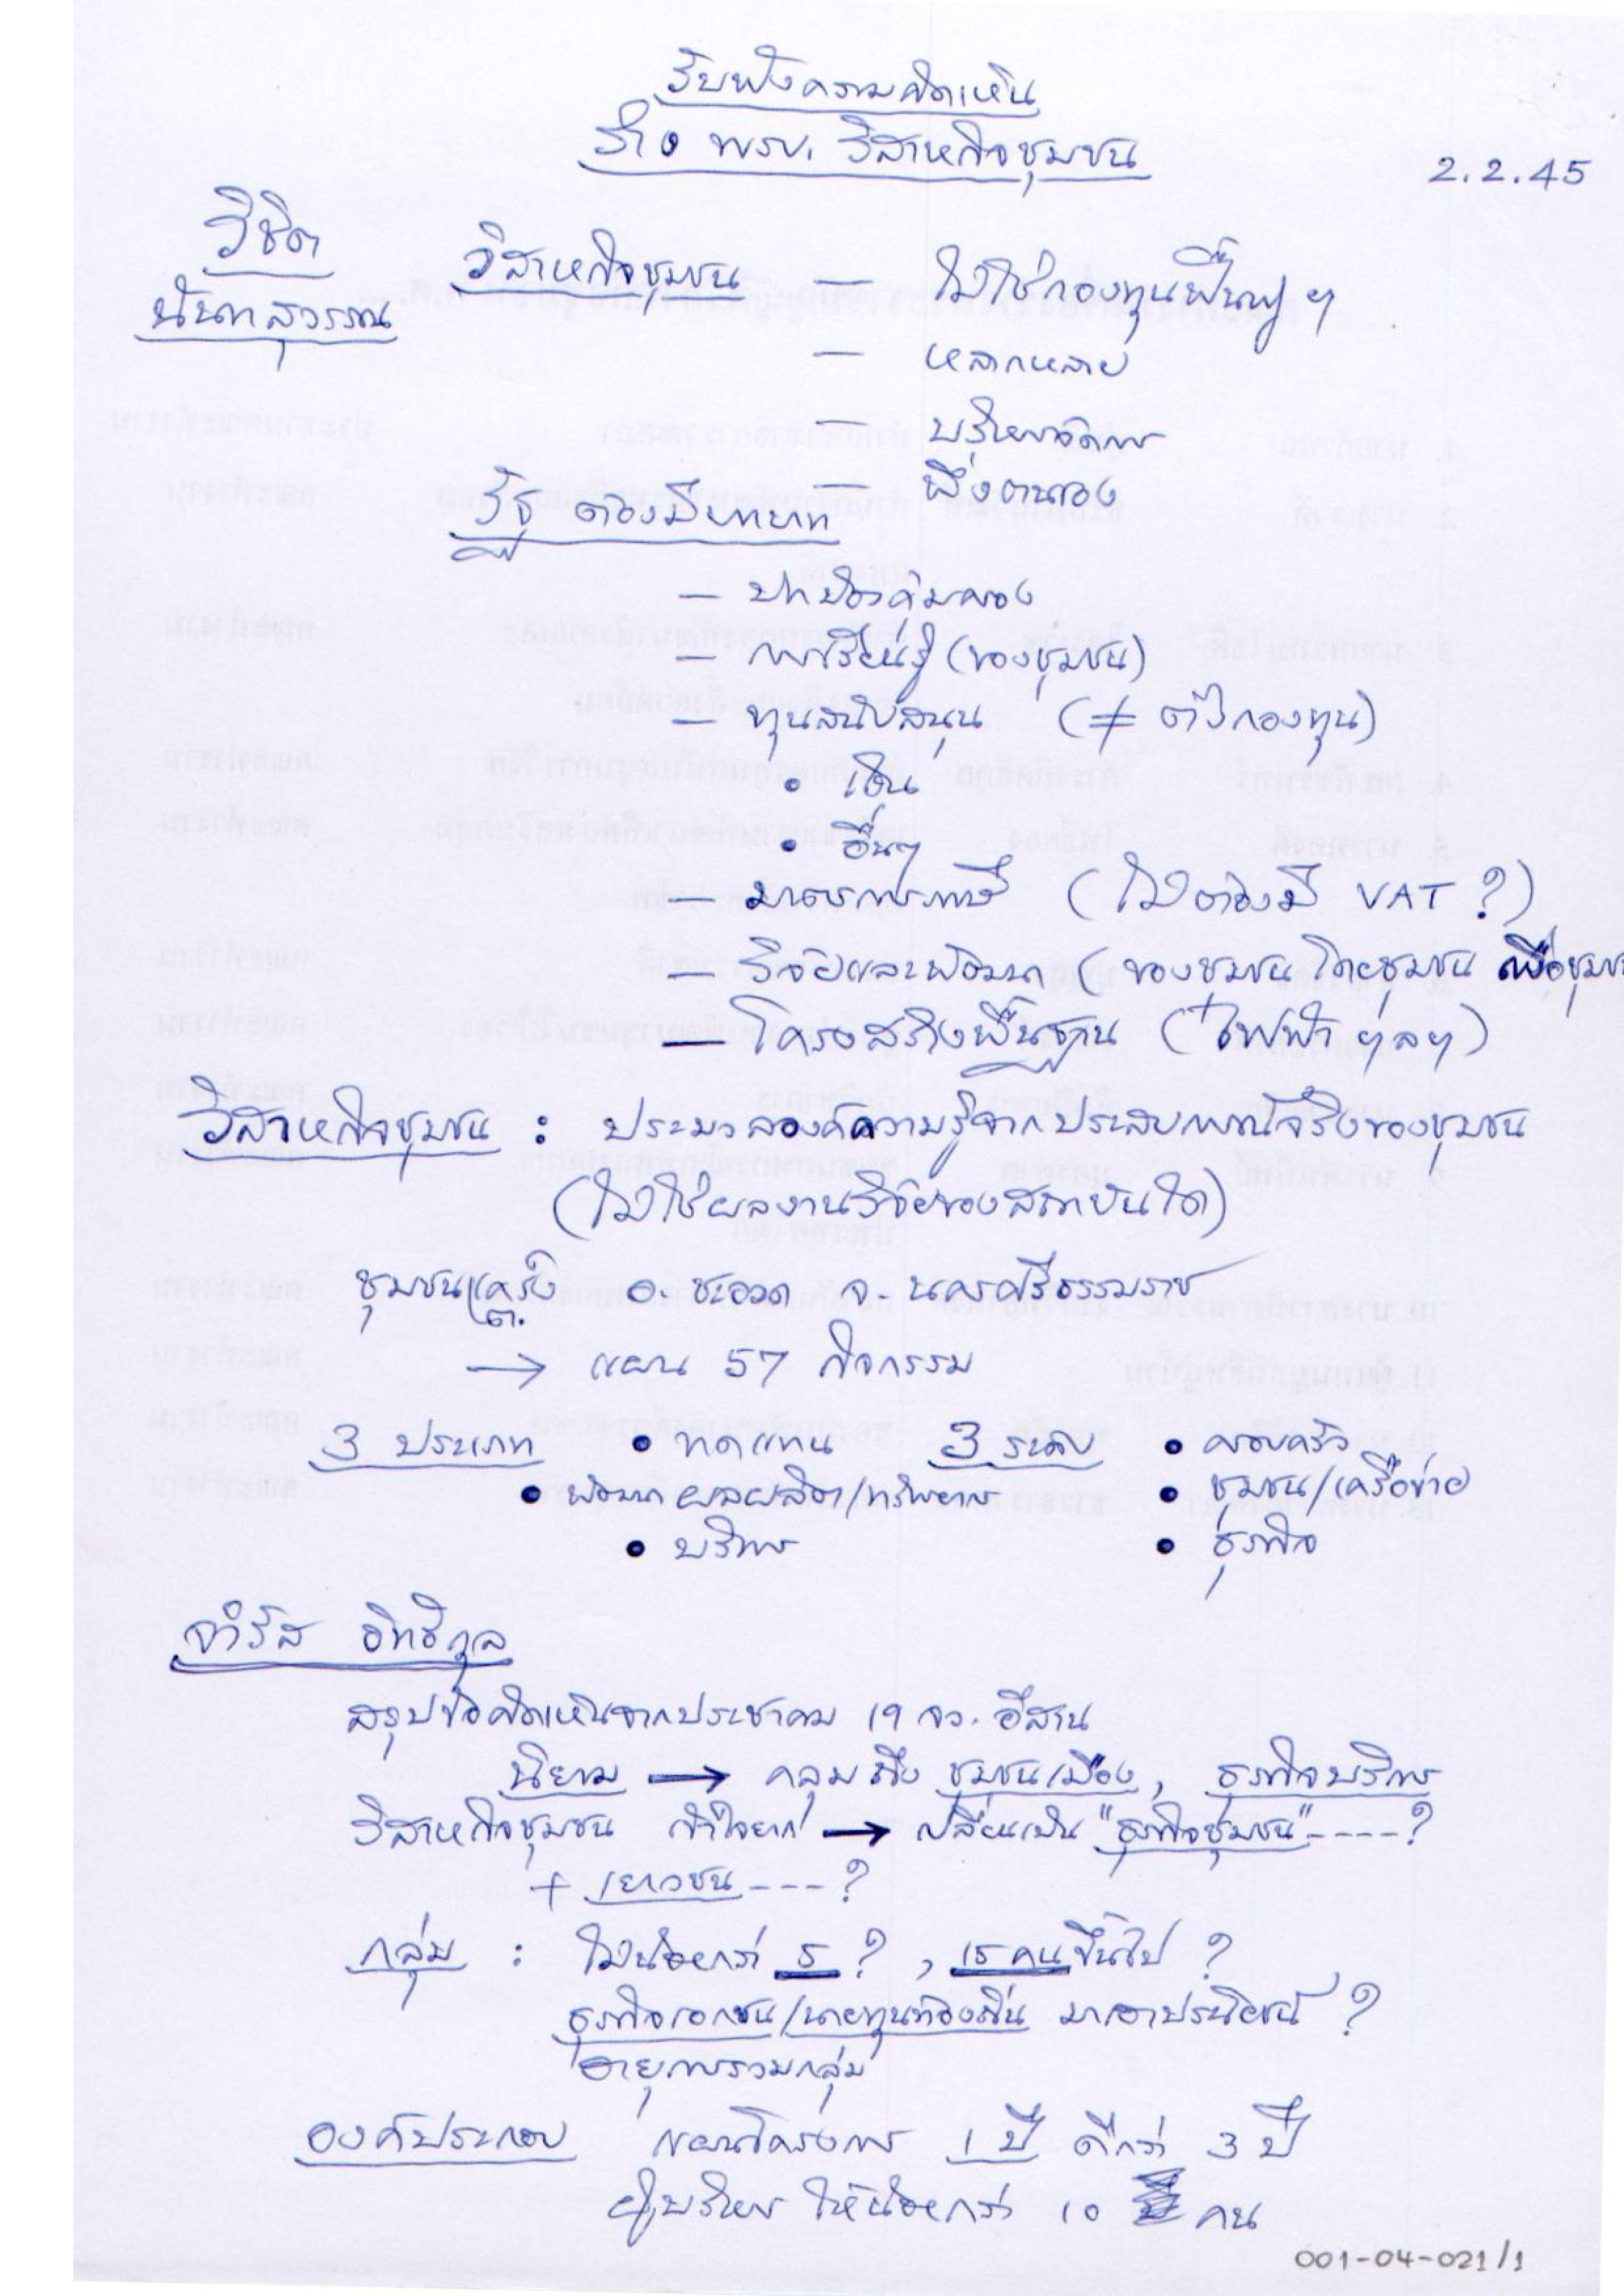 รับฟังความคิดเห็น
ร่าง พรบ. วิสาหกิจชุมชน
2.2.45
วิชิต
นันทสุวรรณ
วิสาหกิจชุมชน — ไม่ใช่กองทุนฟื้นฟูฯ
— หลากหลาย
— บริหารจัดการ
— พึ่งตนเอง
รัฐ ต้องมีบทบาท
— ปกป้องคุ้มครอง
— การเรียนรู้ (ของชุมชน)
— ทุนสนับสนุน (≠ ตั้งกองทุน)
• เงิน
• อื่นๆ
— มาตรการภาษี (ไม่ต้องมี VAT ?)
— วิจัยและพัฒนา (ของชุมชน โดยชุมชน เพื่อชุมช
— โครงสร้างพื้นฐาน (ไฟฟ้า ฯลฯ)
วิสาหกิจชุมชน : ประมวลองค์ความรู้จากประสบการณ์จริงของชุมชน
(ไม่ใช่ผลงานวิจัยของสถาบันใด)
ชุมชน ต.เคร็ง อ. ชะอวด จ. นครศรีธรรมราช
→ แผน 57 กิจกรรม
3 ประเภท • ทดแทน 3 ระดับ • ครอบครัว
• พัฒนาผลผลิต/ทรัพยากร • ชุมชน/เครือข่าย
• บริการ • ธุรกิจ
จำรัส อิทธิกุล
สรุปข้อคิดเห็นจากประชาคม 19 จว. อีสาน
นิยาม → คลุมถึง ชุมชนเมือง, ธุรกิจบริการ
วิสาหกิจชุมชน เข้าใจยาก → เปลี่ยนเป็น "ธุรกิจชุมชน" ----?
+ เยาวชน ---?
กลุ่ม : ไม่น้อยกว่า 5 ? , 15 คนขึ้นไป ?
ธุรกิจเอกชน/นายทุนท้องถิ่น มาเอาประโยชน์ ?
อายุการรวมกลุ่ม
องค์ประกอบ แผนโครงการ 1 ปี ดีกว่า 3 ปี
ผู้บริหาร ให้น้อยกว่า 10 คน
001-04-021/1